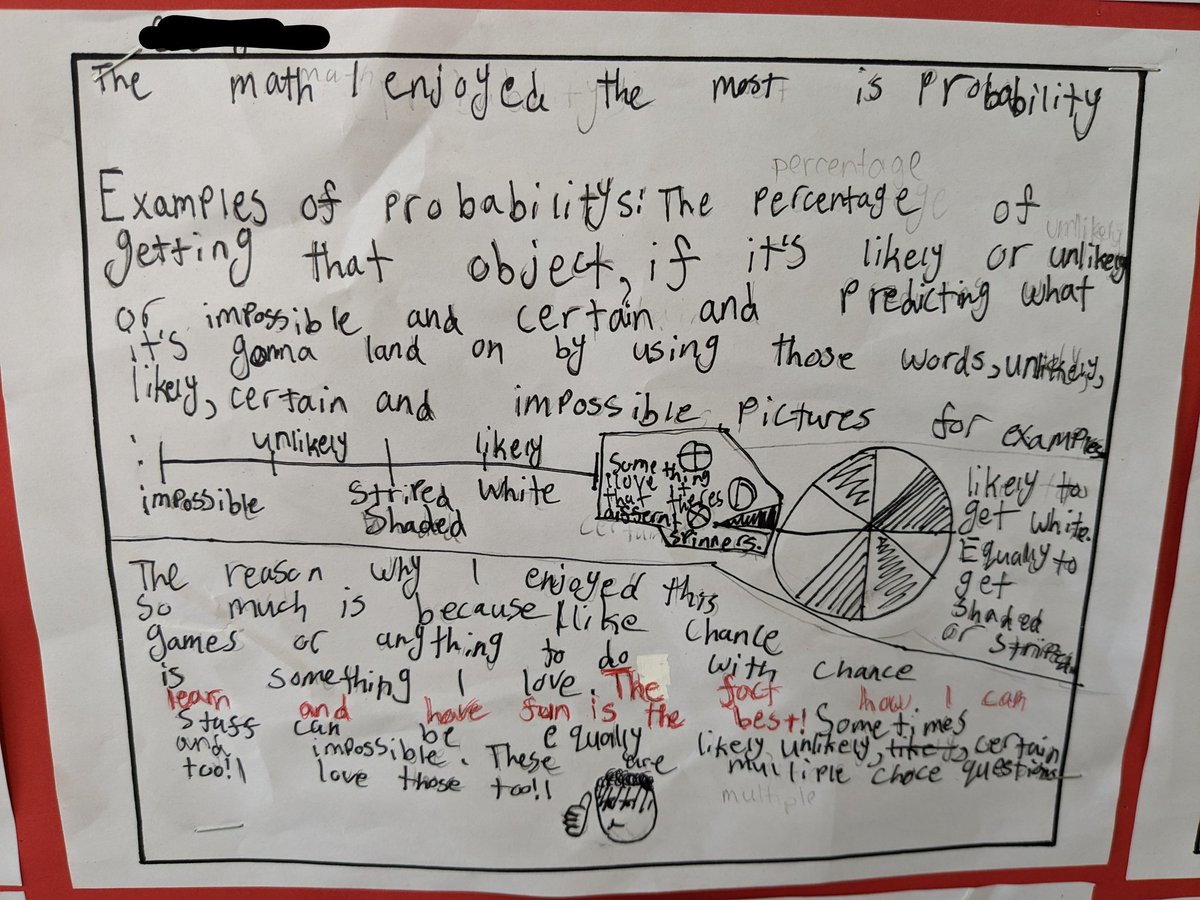 The math I enjoyed the most is Probability
percentage
Examples of probabilitys: The percentage of
unlikely
getting that object, if it's likely or unlikely
or impossible and certain and Predicting what
it's gonna land on by using those words, unlikely,
likely, certain and impossible. Pictures for examples
: unlikely likely
impossible Striped Shaded White
Some thing
I love it
that theses
differnt
spinners.
likely to
get white.
Equally to
get
Shaded
or striped
The reason why I enjoyed this
So much is because I like chance
games or anything to do with chance
is something I love. The fact how I can
learn and have fun is the best! Sometimes
Stuff can be equally likely, unlikely, certain
and impossible. These are multiple choce questions
too! I love those too!!
multiple